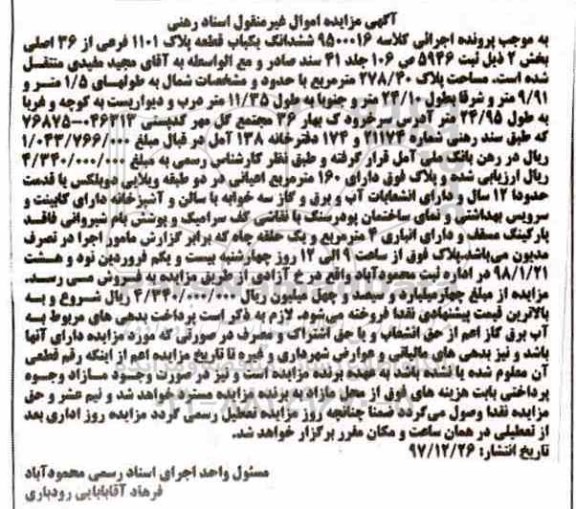 آگهی مزایده اموال غیرمنقول اسناد رهنی
به موجب پرونده اجرائی کلاسه ۹۵۰۰۰۱۶ ششدانگ یکباب قطعه پلاک ۱۱۰۱ فرعی از ۳۶ اصلی
بخش ۲ ذیل ثبت ۵۹۴۶ ص ۱۰۶ جلد ۴۱ سند صادر و مع الواسطه به آقای مجید مفیدی منتقل
شده است. مساحت پلاک ۲۷۸/۴۰ مترمربع با حدود و مشخصات شمال به طولهای ۱/۵ متر و
۹/۹۱ متر و شرقا بطول ۲۴/۱۰ متر و جنوبا به طول ۱۱/۳۵ متر درب و دیواریست به کوچه و غربا
به طول ۲۴/۹۵ متر آدرس سرخرود ک بهار ۳۶ مجتمع گل مهر کدپستی ۰۴۶۳۱۳-۷۶۸۷۵
که طبق سند رهنی شماره ۲۱۱۷۴ و ۱۷۴ دفترخانه ۱۳۸ آمل در قبال مبلغ ۱/۰۴۳/۷۶۶/۰۰۰
ریال در رهن بانک ملی آمل قرار گرفته و طبق نظر کارشناس رسمی به مبلغ ۴/۳۴۰/۰۰۰/۰۰۰
ریال ارزیابی شده و پلاک فوق دارای ۱۶۰ مترمربع اعیانی در دو طبقه ویلایی دوبلکس با قدمت
حدودا ۱۲ سال و دارای انشعابات آب و برق و گاز سه خوابه با سالن و آشپزخانه دارای کابینت و
سرویس بهداشتی و نمای ساختمان پودرسنگ با نقاشی کف سرامیک و پوشش بام شیروانی فاقد
پارکینگ مسقف و دارای انباری ۴ مترمربع و یک حلقه چاه که برابر گزارش مامور اجرا در تصرف
مدیون می‌باشد.پلاک فوق از ساعت ۹ الی ۱۲ روز چهارشنبه بیست و یکم فروردین نود و هشت
۹۸/۱/۲۱ در اداره ثبت محمودآباد واقع در خ آزادی از طریق مزایده به فروش می رسد.
مزایده از مبلغ چهارمیلیارد و سیصد و چهل میلیون ریال ۴/۳۴۰/۰۰۰/۰۰۰ ریال شروع و به
بالاترین قیمت پیشنهادی نقدا فروخته می‌شود. لازم به ذکر است پرداخت بدهی های مربوط به
آب برق گاز اعم از حق انشعاب و یا حق اشتراک و مصرف در صورتی که مورد مزایده دارای آنها
باشد و نیز بدهی های مالیاتی و عوارض شهرداری و غیره تا تاریخ مزایده اعم از اینکه رقم قطعی
آن معلوم شده یا نشده باشد به عهده برنده مزایده است و نیز در صورت وجود مازاد وجوه
پرداختی بابت هزینه های فوق از محل مازاد به برنده مزایده مسترد خواهد شد و نیم عشر و حق
مزایده نقدا وصول می‌گردد ضمنا چنانچه روز مزایده تعطیل رسمی گردد مزایده روز اداری بعد
از تعطیلی در همان ساعت و مکان مقرر برگزار خواهد شد.
تاریخ انتشار: ۹۷/۱۲/۲۶
مسئول واحد اجرای اسناد رسمی محمودآباد
فرهاد آقابابایی رودباری